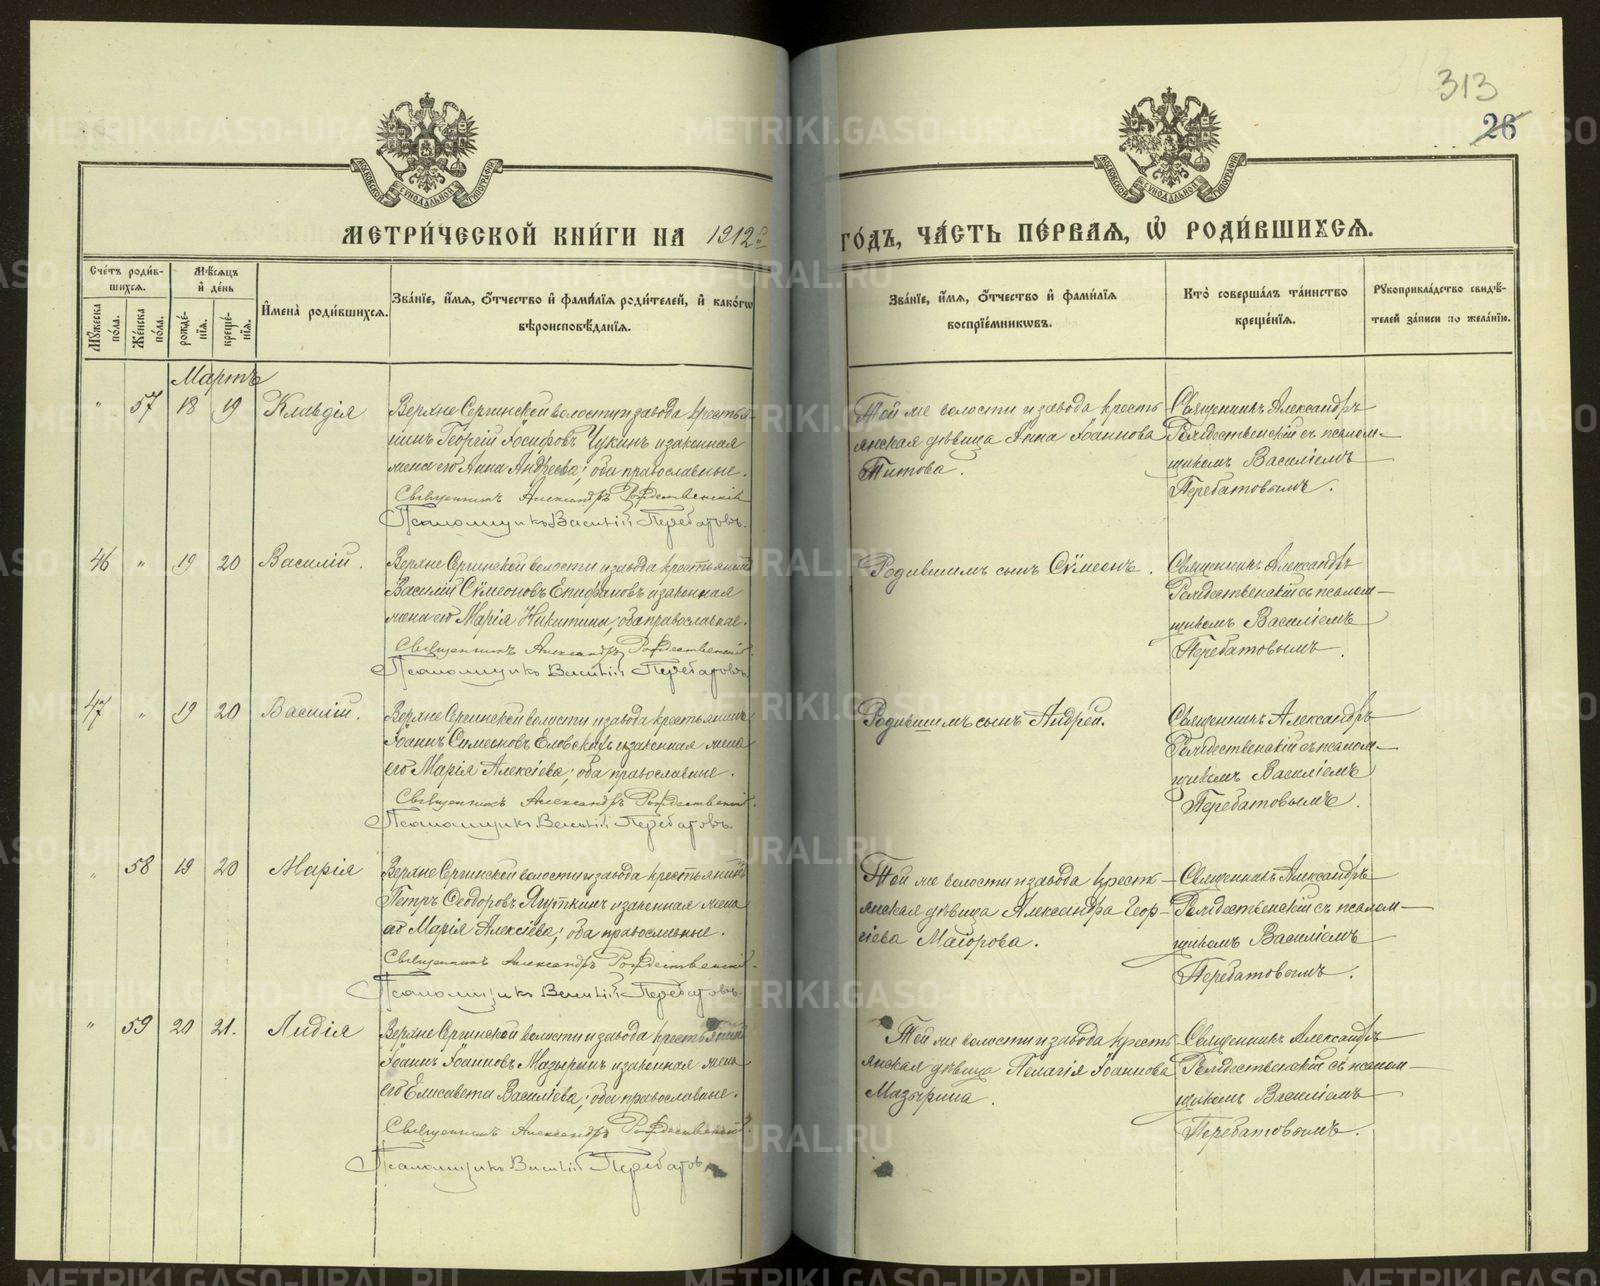 313
26
МОСКОВСКОЙ СѴНОДАЛЬНОЙ ТИПОГРАФІИ
МОСКОВСКОЙ СѴНОДАЛЬНОЙ ТИПОГРАФІИ
МЕТРИ́ЧЕСКОЙ КНИ́ГИ НА 1912 ГО́ДЪ, ЧА́СТЬ ПЕ́РВАЯ, Ѽ РОДИ́ВШИХСЯ.
Сче́тъ роди́в-
шихся.
Мѣ́сяцъ
и҆ де́нь
Мꙋ́жеска по́ла.
Же́нска по́ла.
рожде́-
нїя.
креще́-
нїя.
И҆мена̀ роди́вшихся.
Зва́нїе, и҆́мя, ѻ҆́тчество и҆ фами́лїя роди́телей, и҆ како́гѡ
вѣроисповѣ́данїя.
Зва́нїе, и҆́мя, ѻ҆́тчество и҆ фами́лїя
воспрїе́мникѡвъ.
Кто̀ соверша́лъ та́инство
креще́нїя.
Рꙋкоприкла́дство свидѣ́-
телей за́писи по жела́нїю.
Мартъ
" 57 18 19 Клавдія
Верхне Сергинской волости и завода крестья-
нинъ Георгій Іосифовъ Чукинъ и законная
жена его Анна Андреева; оба православные.
Священникъ Александръ Рождественскій
Псаломщикъ Василій Перебатовъ.
Той же волости и завода кресть-
янская дѣвица Анна Іоаннова
Титова.
Священникъ Александръ
Рождественскій съ псалом-
щикомъ Василіемъ
Перебатовымъ.
46 " 19 20 Василій.
Верхне Сергинской волости и завода крестьянинъ
Василій Сѵмеоновъ Епифановъ и законная
жена его Марія Никитина; оба православные.
Священникъ Александръ Рождественскій.
Псаломщикъ Василій Перебатовъ
Родившимъ сынъ Сѵмеонъ.
Священникъ Александръ
Рождественскій съ псалом-
щикомъ Василіемъ
Перебатовымъ.
47 " 19 20 Василій.
Верхне Сергинской волости и завода крестьянинъ
Іоаннъ Симеоновъ и законная жена
его Марія Алексіева; оба православные.
Священникъ Александръ Рождественскій.
Псаломщикъ Василій Перебатовъ
Родившимъ сынъ Андрей.
Священникъ Александръ
Рождественскій съ псалом-
щикомъ Василіемъ
Перебатовымъ.
" 58 19 20 Марія
Верхне Сергинской волости и завода крестьянинъ
Петръ Ѳеодоровъ Яшткинъ и законная жена
его Марія Алексіева; оба православные.
Священникъ Александръ Рождественскій.
Псаломщикъ Василій Перебатовъ.
Той же волости и завода кресть-
янская дѣвица Александра Геор-
гіева Маіорова.
Священникъ Александръ
Рождественскій съ псалом-
щикомъ Василіемъ
Перебатовымъ.
" 59 20 21. Лидія
Верхне Сергинской волости и завода крестьянинъ
Іоаннъ Іоанновъ Мазыринъ и законная жена
его Елисавета Василіева; оба православные.
Священникъ Александръ Рождественскій.
Псаломщикъ Василій Перебатовъ
Той же волости и завода кресть-
янская дѣвица Пелагія Іоаннова
Мазырина.
Священникъ Александръ
Рождественскій съ псалом-
щикомъ Василіемъ
Перебатовымъ.
METRIKI.GASO-URAL.RU